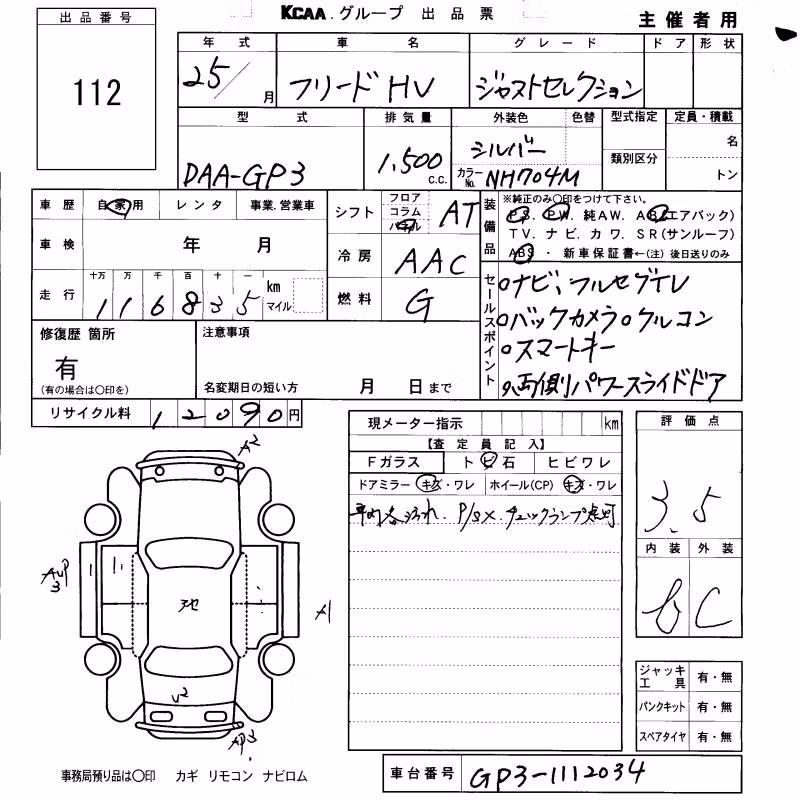 KCAA.グループ 出品票
主催者用
出品番号
112
年式 車名 グレード ドア 形状
25/月 フリードHV ジャストセレクション
型式 排気量 外装色 色替 型式指定 定員・積載
DAA-GP3 1,500 c.c. シルバー カラーNo. NH704M 類別区分 名 トン
車歴 自家用 レンタ 事業.営業車
車検 年 月
十万 万 千 百 十 一
走行 116835 km マイル
シフト フロア コラム パネル AT
冷房 AAC
燃料 G
装備品
※純正のみ○印をつけて下さい。
PS. PW. 純AW. AB(エアバック)
TV. ナビ. カワ. SR(サンルーフ)
ABS ・ 新車保証書←(注) 後日送りのみ
セールスポイント
○ナビ、フルセグTV
○バックカメラ○クルコン
○スマートキー
○両側パワースライドドア
修復歴 箇所
有
(有の場合は○印を)
注意事項
名変期日の短い方 月 日まで
リサイクル料 12090円
現メーター指示 km
【査定員記入】
Fガラス トビ石 ヒビワレ
ドアミラー キズ・ワレ ホイール(CP) キズ・ワレ
車内各汚れ. P/S×. チェックランプ点灯
評価点
3.5
内装 外装
b C
A2
A3 UP
アセ
A1
U2
AP3
ジャッキ工具 有・無
パンクキット 有・無
スペアタイヤ 有・無
事務局預り品は○印 カギ リモコン ナビロム
車台番号 GP3-1112034